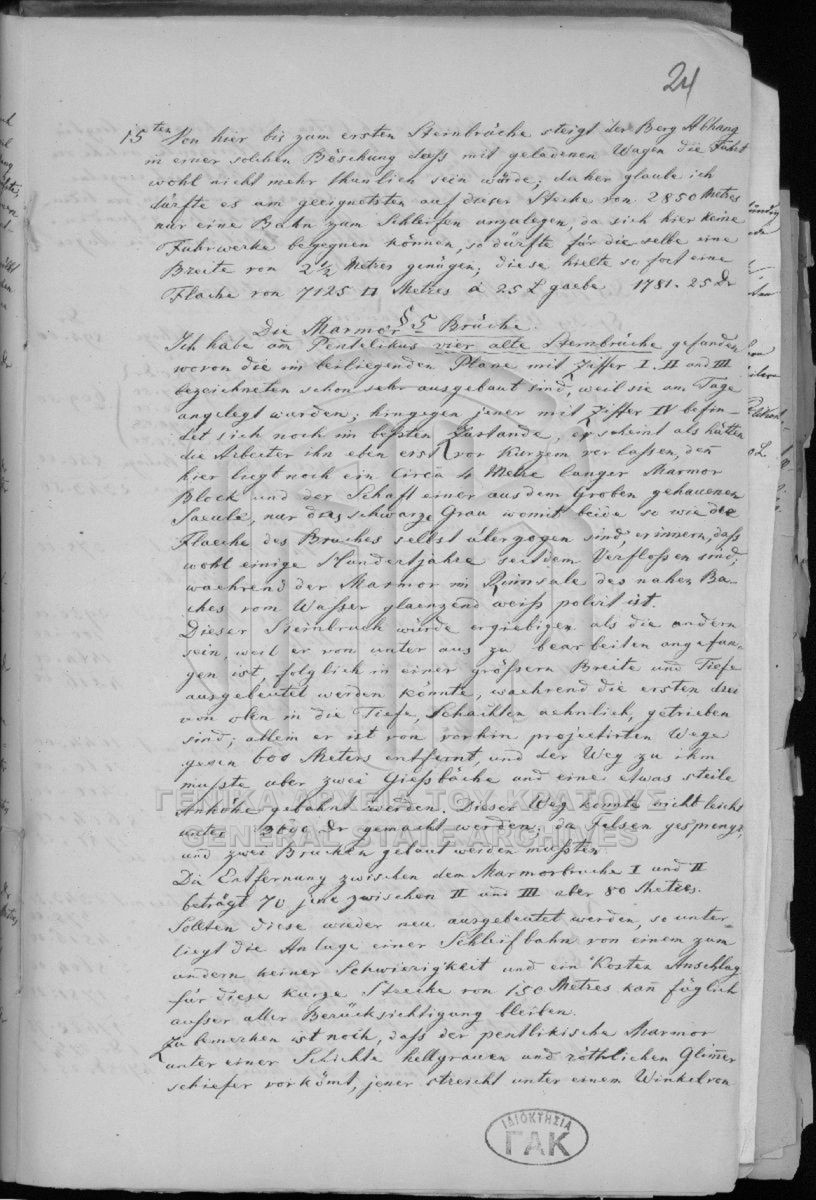 24
15ten Von hier bis zum ersten Steinbrüche steigt der Berg Abhang
in einer solchen Böschung daß mit geladenen Wagen die Fuhrt
wohl nicht mehr thunlich sein würde; daher glaube ich
dürfte es am geeignetsten auf dieser Strecke von 2850 Metres
nur eine Bahn zum Schleifen anzulegen, da sich hier keine
Fuhrwerke begegnen können, so dürfte für die selbe eine
Breite von 2 1/2 Metres genügen; diese hielte so fort eine
Flache von 7125 □ Metres á 25 L gaebe 1781. 25 Dr
§ 5
Die Marmor Brüche.
Ich habe am Pentelikus vier alte Steinbrüche gefunden
wovon die im beiliegenden Plane mit Ziffer I. II und III
bezeichneten schon sehr ausgebaut sind, weil sie am Tage
angelegt wurden; hingegen jener mit Ziffer IV befin-
det sich noch im besten Zustande, er scheint als hätten
die Arbeiter ihn eben erst vor kurzem verlassen, deñ
hier liegt noch ein Circa 4 Metre langer Marmor
Block und der Schaft einer aus dem Groben gehauenen
Saeule, nur das schwarze Grau womit beide so wie die
Flaeche des Bruches selbst überzogen sind, erinnern, daß
wohl einige Hundertjahre seitdem Verfloßen sind;
waehrend der Marmor im Rinnsale des nahen Ba-
ches vom Waßer glaenzend weiß polirt ist.
Dieser Steinbruch würde ergiebigen als die andern
sein, weil er von unter aus zu bearbeiten angefan-
gen ist, folglich in einer größern Breite und Tiefe
ausgebeutet werden könnte, waehrend die ersten drei
von oben in die Tiefe, Schachten aehnlich, getrieben
sind; allein er ist von vorhin projectirten Wege
gegen 600 Meters entfernt, und der Weg zu ihm
mußte über zwei Gießbäche und eine etwas steile
Anhöhe gebahnt werden. Dieser Weg konnte nicht leicht
unter 3600 Dr gemacht werden; da Felsen gesprengt,
und zwei Brucken gebaut werden mußten.
Die Entfernung zwischen dem Marmorbruche I und II
beträgt 70 jene zwischen II und III aber 80 Metres.
Sollten diese wieder neu ausgebeutet werden, so unter-
liegt die Anlage einer Schleifbahn von einem zum
andern keiner Schwierigkeit und ein Kosten Anschlag
für diese kurze Strecke von 150 Metres kañ füglich
außer aller Berücksichtigung bleiben.
Zu bemerken ist noch, daß der pentlikische Marmor
unter einer Schichte hellgrauen und röthlichen Glim̃er
schiefer vorköm̃t, jener streicht unter einem Winkel von
ΓΕΝΙΚΑ ΑΡΧΕΙΑ ΤΟΥ ΚΡΑΤΟΥΣ
GENERAL STATE ARCHIVES
ΙΔΙΟΚΤΗΣΙΑ
ΓΑΚ